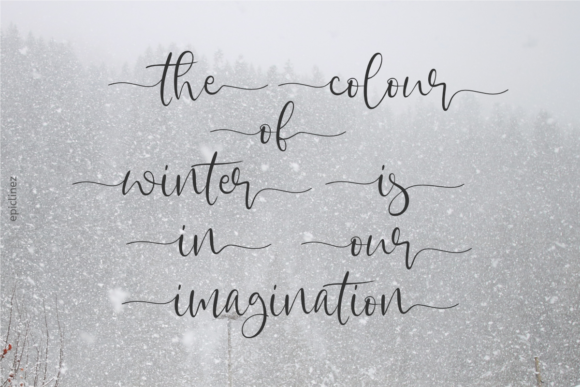 the colour
of
winter is
in our
imagination
epiclinez